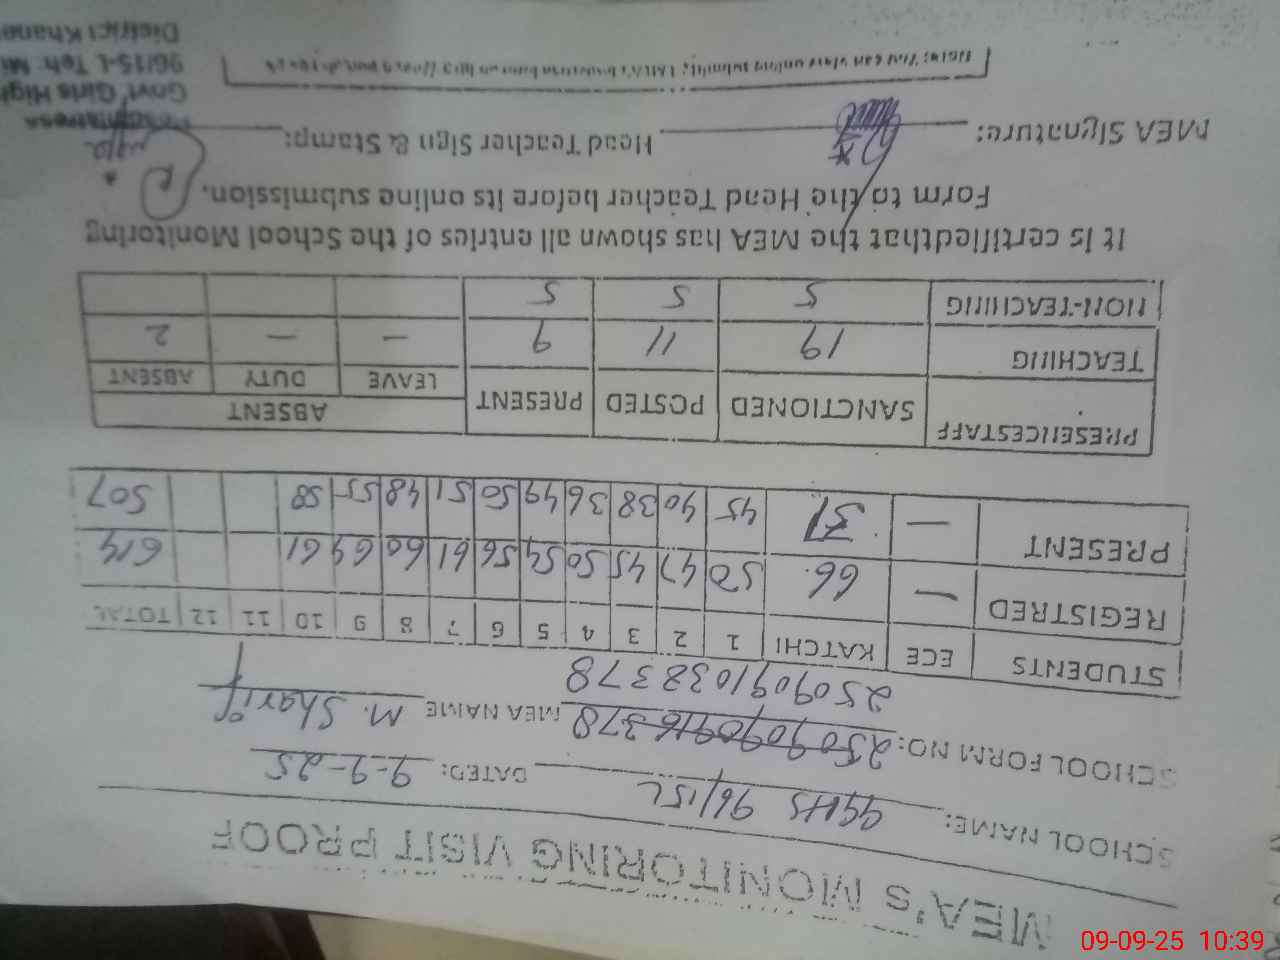 MEA'S MONITORING VISIT PROOF
SCHOOL NAME: GGHS 96/15L DATED: 9-9-25
SCHOOL FORM NO: MEA NAME M. Sharif
2509091038378
STUDENTS ECE KATCHI 1 2 3 4 5 6 7 8 9 10 11 12 TOTAL
REGISTRED — 66 50 47 45 50 54 56 61 60 64 61 614
PRESENT — 37 45 40 38 36 49 50 51 48 55 58 507
PRESENCESTAFF SANCTIONED POSTED PRESENT ABSENT
LEAVE DUTY ABSENT
TEACHING 19 11 9 — — 2
NON-TEACHING 5 5 5
It is certifiedthat the MEA has shown all entries of the School Monitoring
Form to the Head Teacher before its online submission.
MEA Signature: Head Teacher Sign & Stamp:
Govt. Girls High
96/15-L Teh: Mi
District Khane
09-09-25 10:39